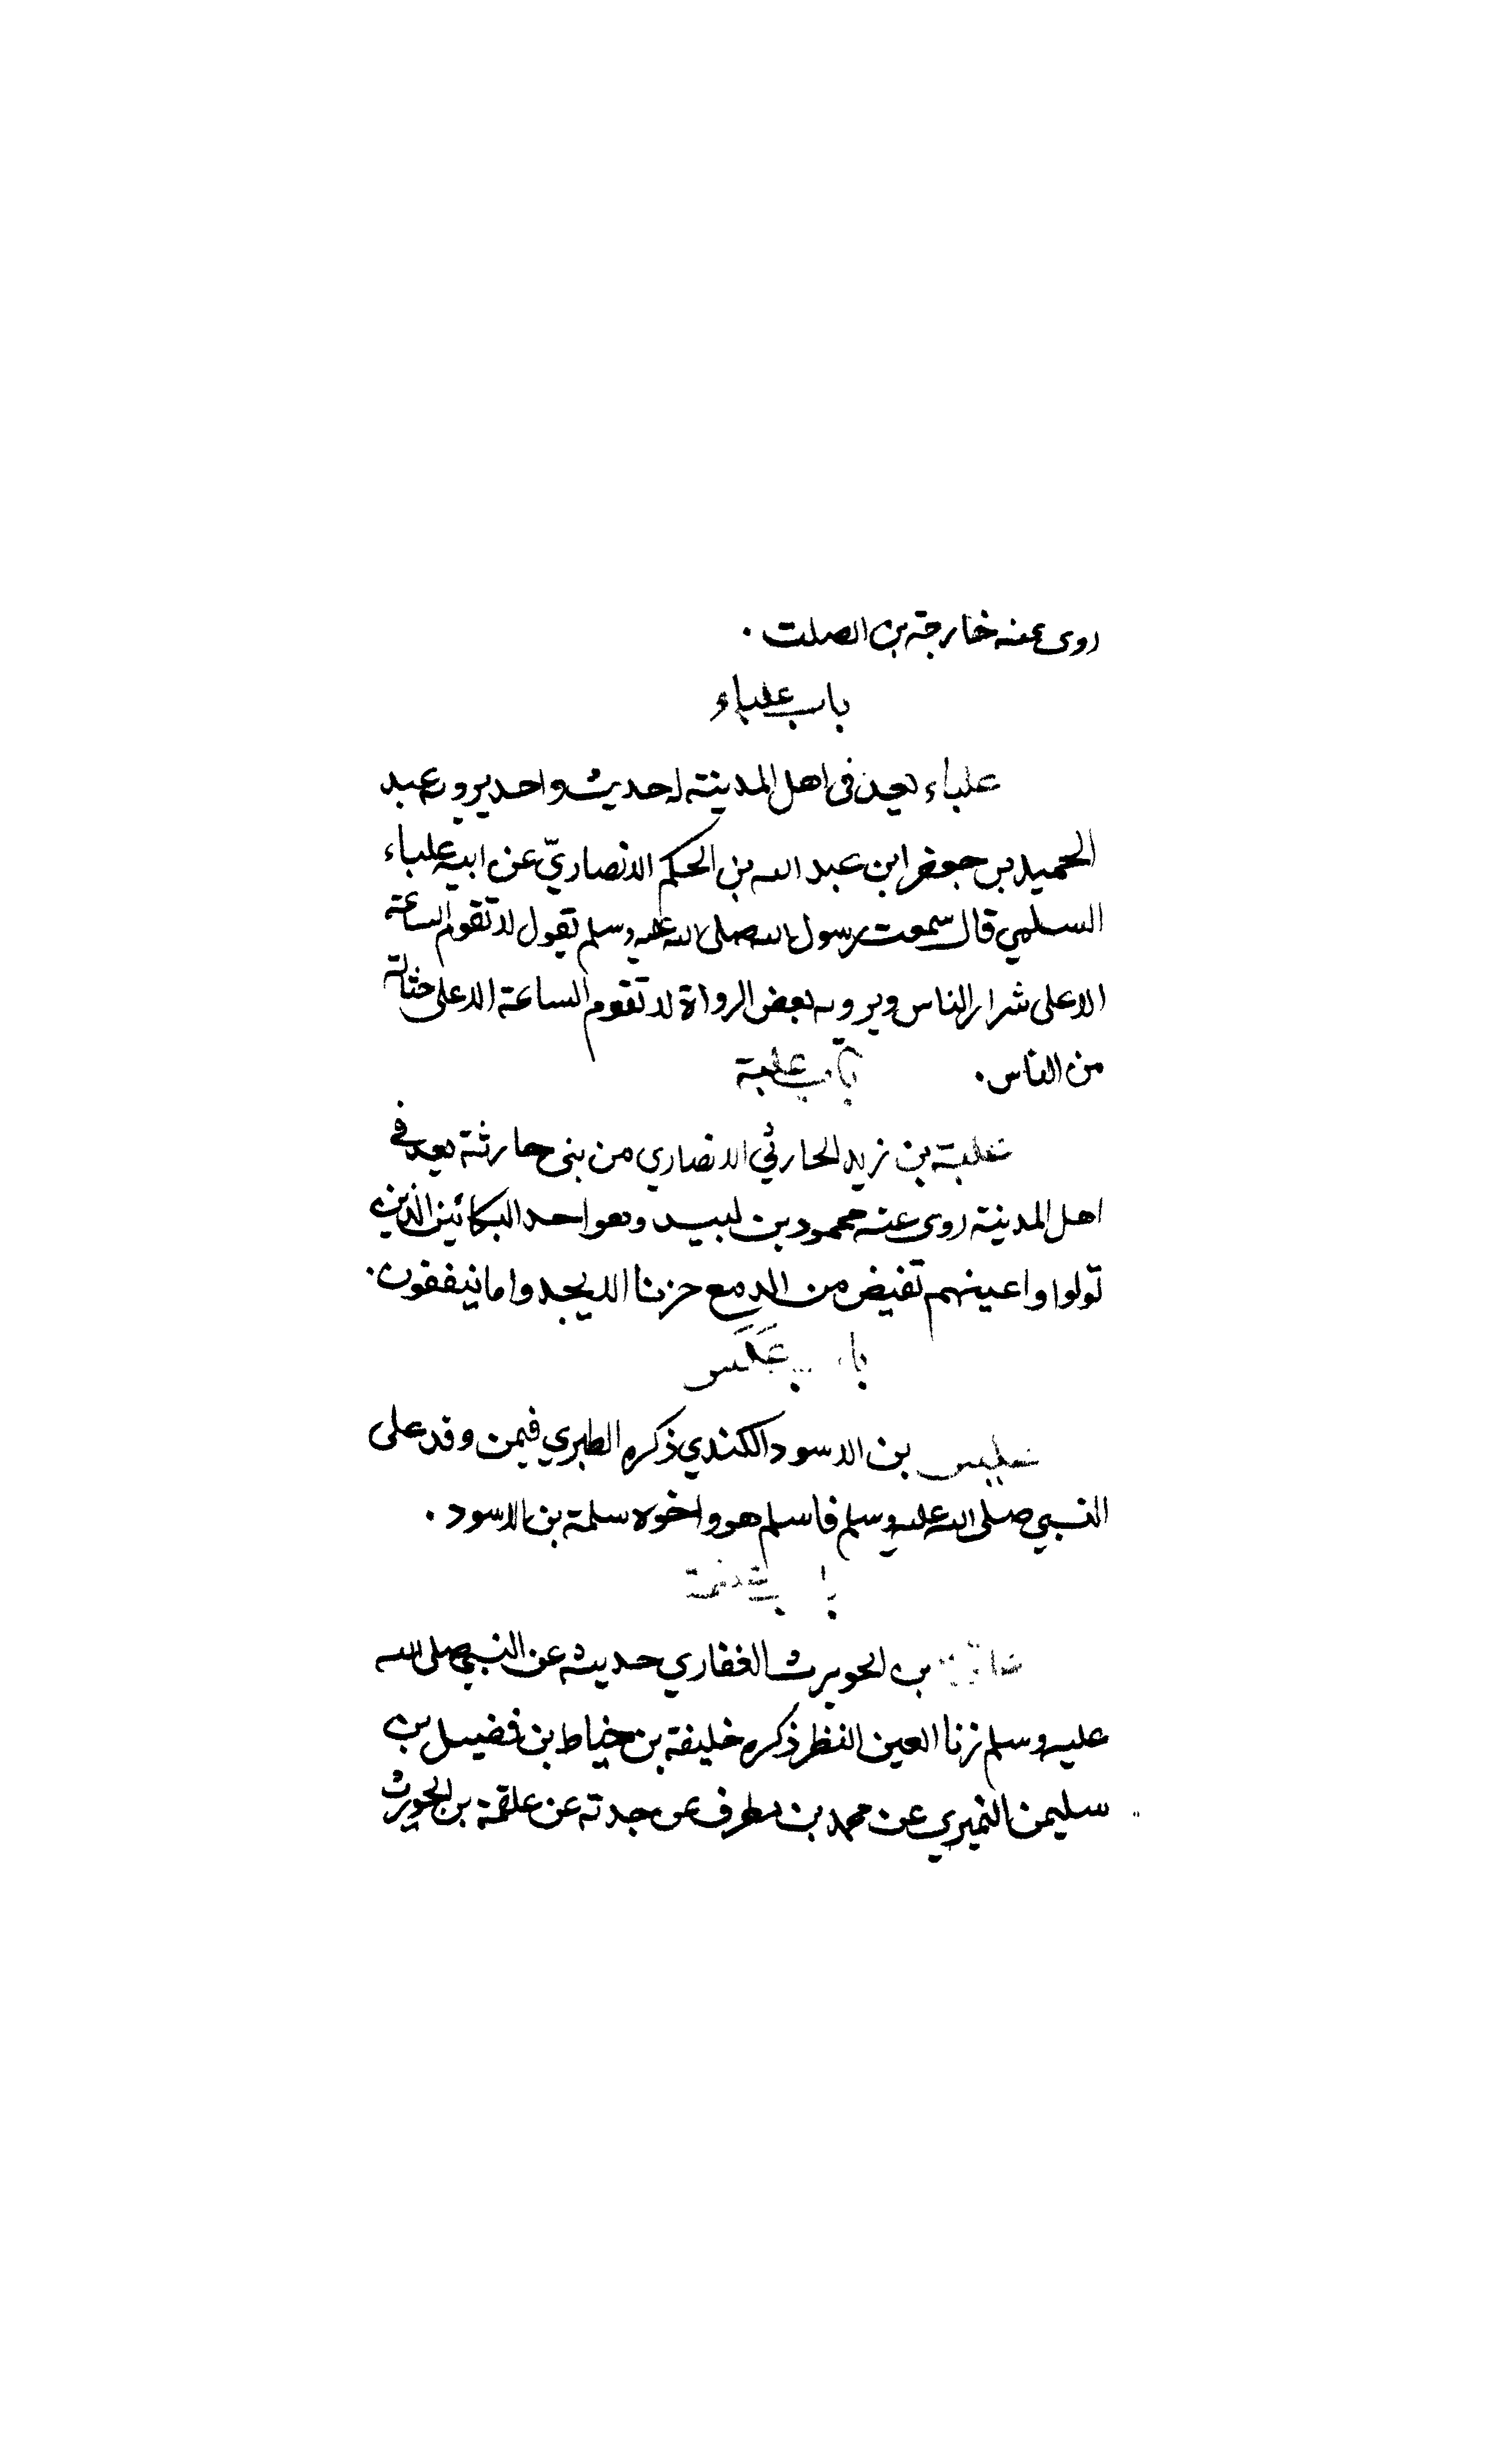 روى عنه خارجة بن الصلت .
باب علباء
علباء يعد في اهل المدينة له حديث واحد يرويه عبد
الحميد بن جعفر ابن عبد الله بن الحكم الانصاريّ عن ابيه علباء
السلمي قال سمعت رسول الله صلى الله عليه وسلم يقول لا تقوم الساعة
الا على شرار الناس ويرويه بعض الرواة لا تقوم الساعة الا على حثالة
من الناس .
باب علبة
علبة بن زيد الحارثي الانصاري من بني حارثة يعد في
اهل المدينة روى عنه محمود بن لبيد وهو احد البكائين الذين
تولوا واعينهم تفيض من الدمع حزنا الا يجدوا ما ينفقون .
باب
بن الاسود الكندي ذكره الطبري فيمن وفد على
النبي صلى الله عليه وسلم فاسلم هو واخوه سلمة بن الاسود .
باب
بن الحويرث الغفاري حديثه عن النبي صلى الله
عليه وسلم زنا العين النظر ذكره خليفة بن خياط بن فضيل بن
سليمن النميري عن محمد بن مطرف عن جدته عن علقمة بن الحويرث